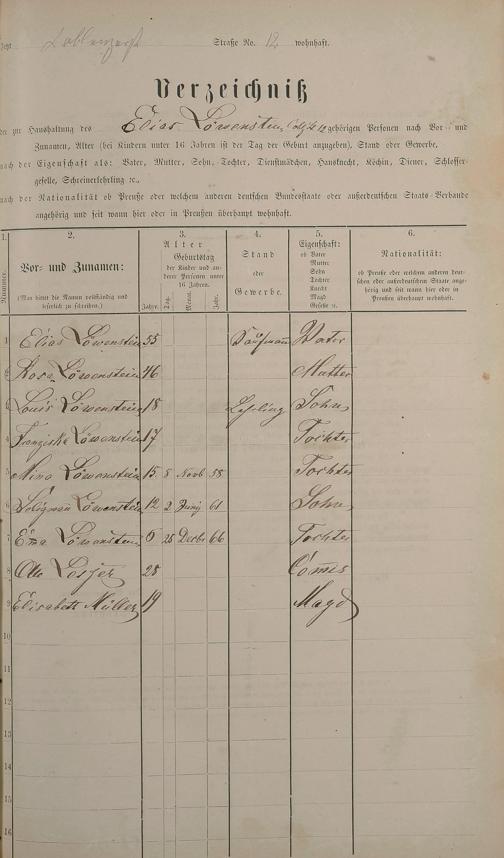 Straße No. 12 wohnhaft.
Verzeichniß
der zur Haushaltung des Elias Löwenstein gehörigen Personen nach Vor- und
Zunamen, Alter (bei Kindern unter 16 Jahren ist der Tag der Geburt anzugeben), Stand oder Gewerbe,
nach der Eigenschaft als: Vater, Mutter, Sohn, Tochter, Dienstmädchen, Hausknecht, Köchin, Diener, Schlosser-
geselle, Schreinerlehrling ꝛc.,
nach der Nationalität ob Preuße oder welchem anderen deutschen Bundesstaate oder außerdeutschen Staats-Verbande
angehörig und seit wann hier oder in Preußen überhaupt wohnhaft.
1.
Nummer.
2.
Vor- und Zunamen:
(Man bittet die Namen vollständig und
leserlich zu schreiben.)
3.
Alter
Jahre.
Geburtstag
der Kinder und an-
derer Personen unter
16 Jahren.
Tag. Monat. Jahr.
4.
Stand
oder
Gewerbe.
5.
Eigenschaft:
ob Vater
Mutter
Sohn
Tochter
Knecht
Magd
Geselle ꝛc.
6.
Nationalität:
ob Preuße oder welchem anderen deut-
schen oder außerdeutschen Staate ange-
hörig und seit wann hier oder in
Preußen überhaupt wohnhaft.
1 Elias Löwenstein 55 Kaufmann Vater
2 Rosa Löwenstein 46 Mutter
3 Louis Löwenstein 18 Lehrling Sohn
4 Franziska Löwenstein 17 Tochter
5 Mina Löwenstein 15 8 Novb 58 Tochter
6 Seligman Löwenstein 12 2 Junij 61 Sohn
7 Emma Löwenstein 6 28 Decbr 66 Tochter
8 28 Comis
9 Elisabeth Müller 19 Magd
10
11
12
13
14
15
16